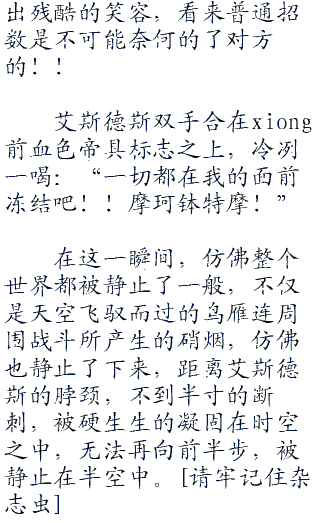 出残酷的笑容，看来普通招
数是不可能奈何的了对方
的！！
艾斯德斯双手合在xiong
前血色帝具标志之上，冷冽
一喝：“一切都在我的面前
冻结吧！！摩珂钵特摩！”
在这一瞬间，仿佛整个
世界都被静止了一般，不仅
是天空飞驭而过的乌雁连周
围战斗所产生的硝烟，仿佛
也静止了下来，距离艾斯德
斯的脖颈，不到半寸的断
刺，被硬生生的凝固在时空
之中，无法再向前半步，被
静止在半空中。[请牢记住杂
志虫]